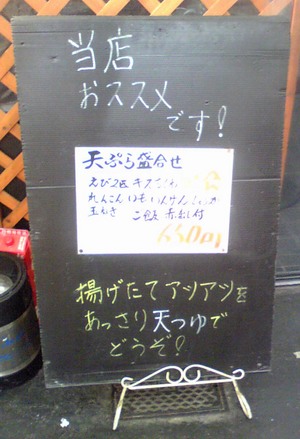 当店
おススメ
です!
天ぷら盛合せ
えび2匹 キス
れんこん いも いんげん
玉ねぎ ご飯 赤出し付
650円
揚げたて アツアツを
あっさり 天つゆで
どうぞ!